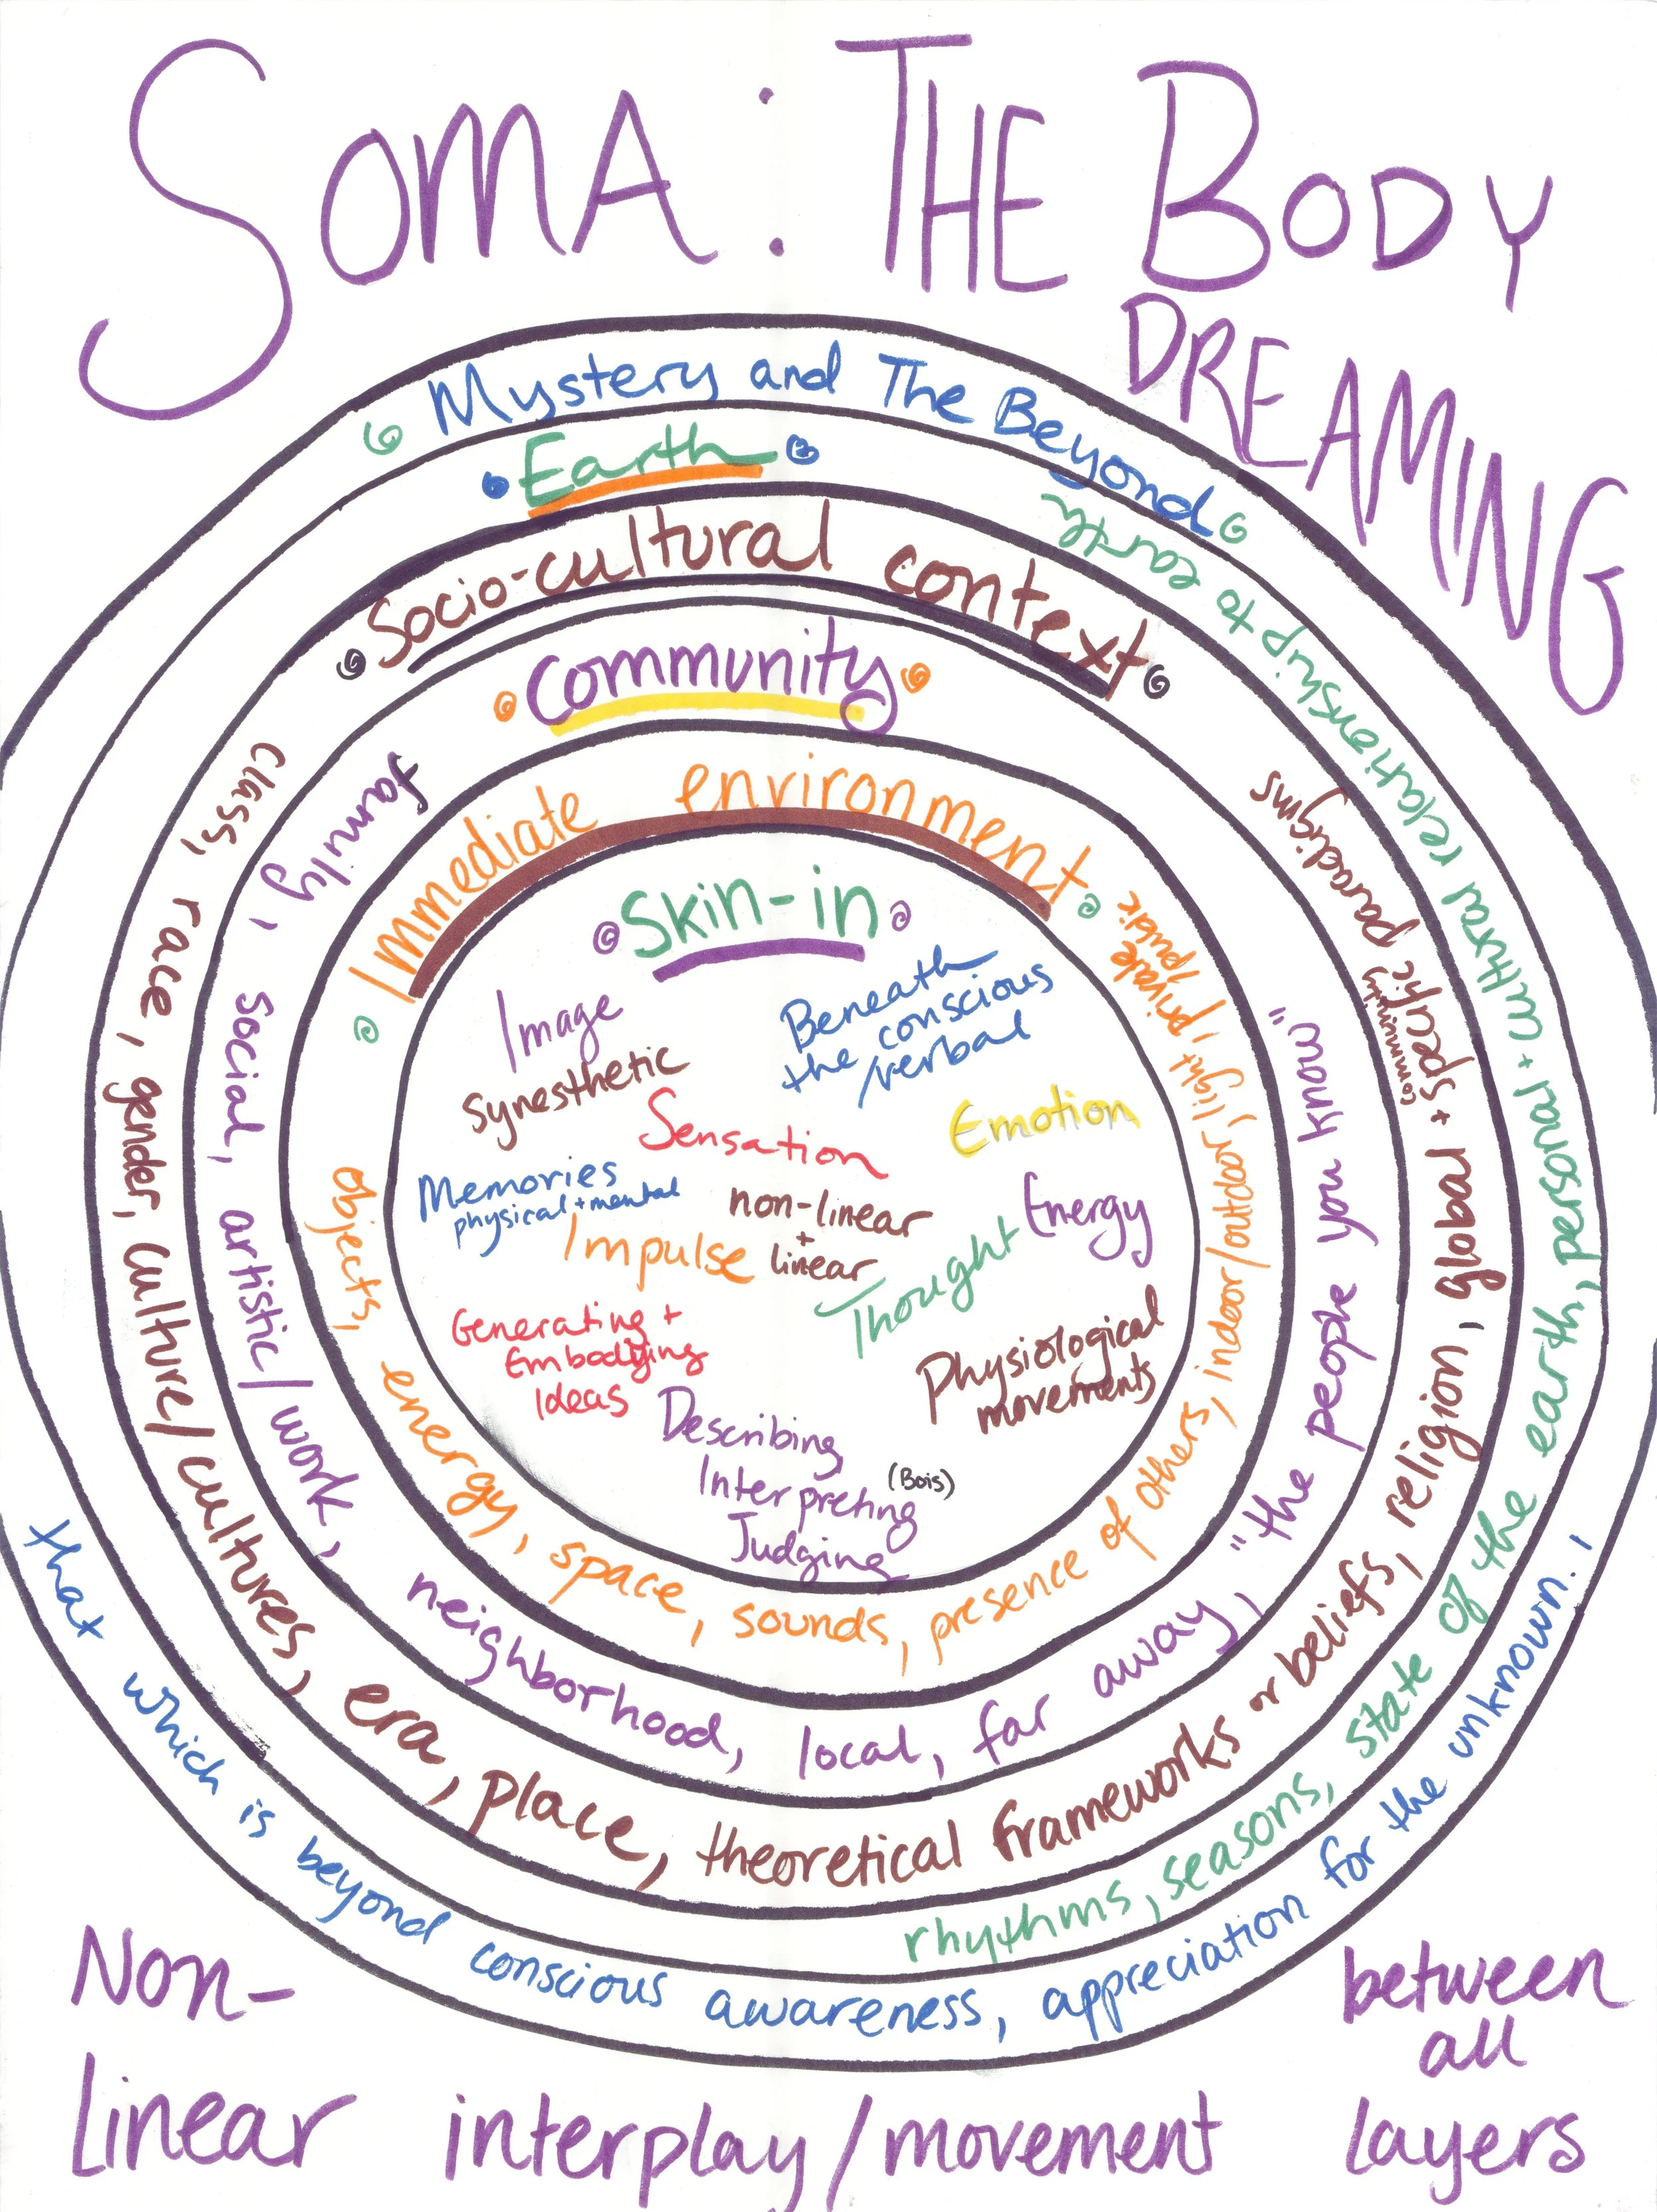 SOMA: THE BODY
DREAMING
Mystery and The Beyond
Earth
Socio-cultural context
Community
Immediate environment
Skin-in
Image
Beneath
the conscious
/verbal
Synesthetic
Sensation
Emotion
Memories
physical + mental
non-linear
+
linear
Energy
Impulse
Thought
Generating +
Embodying
Ideas
Physiological
movements
Describing
Interpreting
(Bois)
Judging
objects, energy, space, sounds, presence of others, indoor/outdoor, light, private
/public
family, social, artistic/work, neighborhood, local, far away, "the people you know"
class, race, gender, culture/cultures, era, place, theoretical frameworks or beliefs, religion, global + specific paradigms
community
rhythms, seasons, state of the earth, personal + cultural relationship to earth
that which is beyond conscious awareness, appreciation for the unknown.
Non-
Linear interplay/movement
between
all
layers